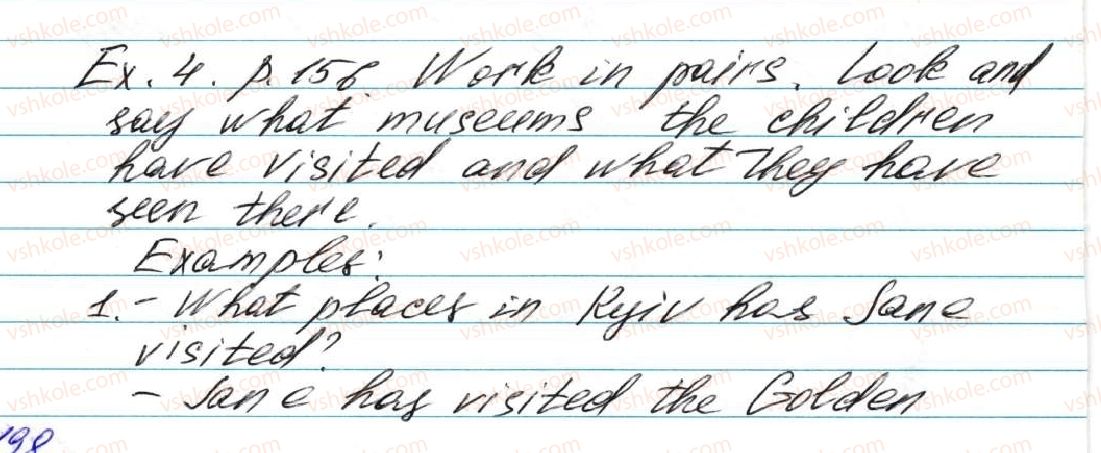 Ex. 4. p. 156. Work in pairs. Look and
say what museums the children
have visited and what they have
seen there.
Examples:
1. - What places in Kyiv has Jane
visited?
- Jane has visited the Golden
198
vshkole.com